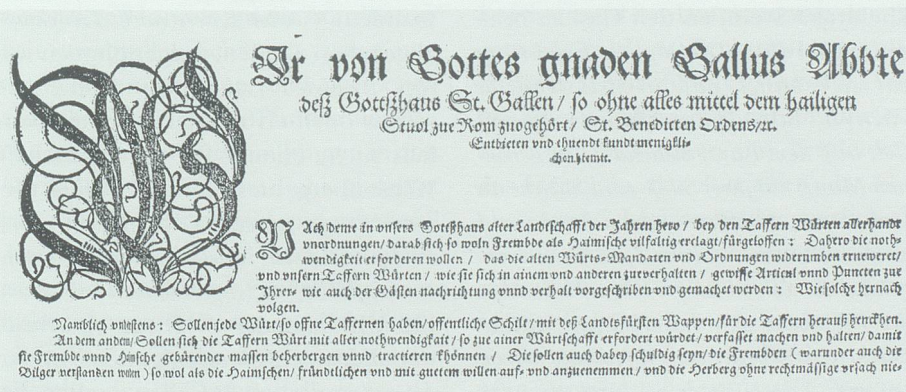 WIr von Gottes gnaden Gallus Abbte
deß Gottßhaus St. Gallen / so ohne alles mittel dem hailigen
Stuol zur Rom zuogehört / St. Benedicten Ordens / ꝛc.
Entbieten vnd thuendt kundt menigkli-
chen hiemit.
NAch deme in vnsers Gottßhaus alter Landtschafft der Jahren hero / bey den Taffern Würten allerhandt
vnordnungen / darab sich so woln Frembde als Haimische vilfaltig erclagt / fürgeloffen : Dahero die noth-
wendigkeit erforderen wollen / das die alten Würts-Mandaten vnd Ordnungen widerumben erneweret /
vnd vnsern Taffern Würten / wie sie sich in ainem vnd anderen zueverhalten / gewisse Articul vnnd Puncten zue
Ihrer- wie auch der Gästen nachrichtung vnnd verhalt vorgeschriben vnd gemachet werden : Wie solche hernach
volgen.
Namblich vnd erstens : Sollen jede Würt / so offne Taffernen haben / offentliche Schilt / mit deß Landtsfürsten Wappen / für die Taffern herauß henckhen.
An dem andern / Sollen sich die Taffern Würt mit aller nothwendigkait / so zue ainer Würtschafft erfordert würdet / verfasset machen vnd halten / damit
sie Frembde vnnd Haimsche gebürender massen beherbergen vnnd tractieren khönnen / Die sollen auch dabey schuldig seyn / die Frembden ( warunder auch die
Bilger verstanden wellen ) so wol als die Haimschen / fründtlichen vnd mit guetem willen auf- vnd anzuenemmen / vnd die Herberg ohne rechtmässige vrsach nie-